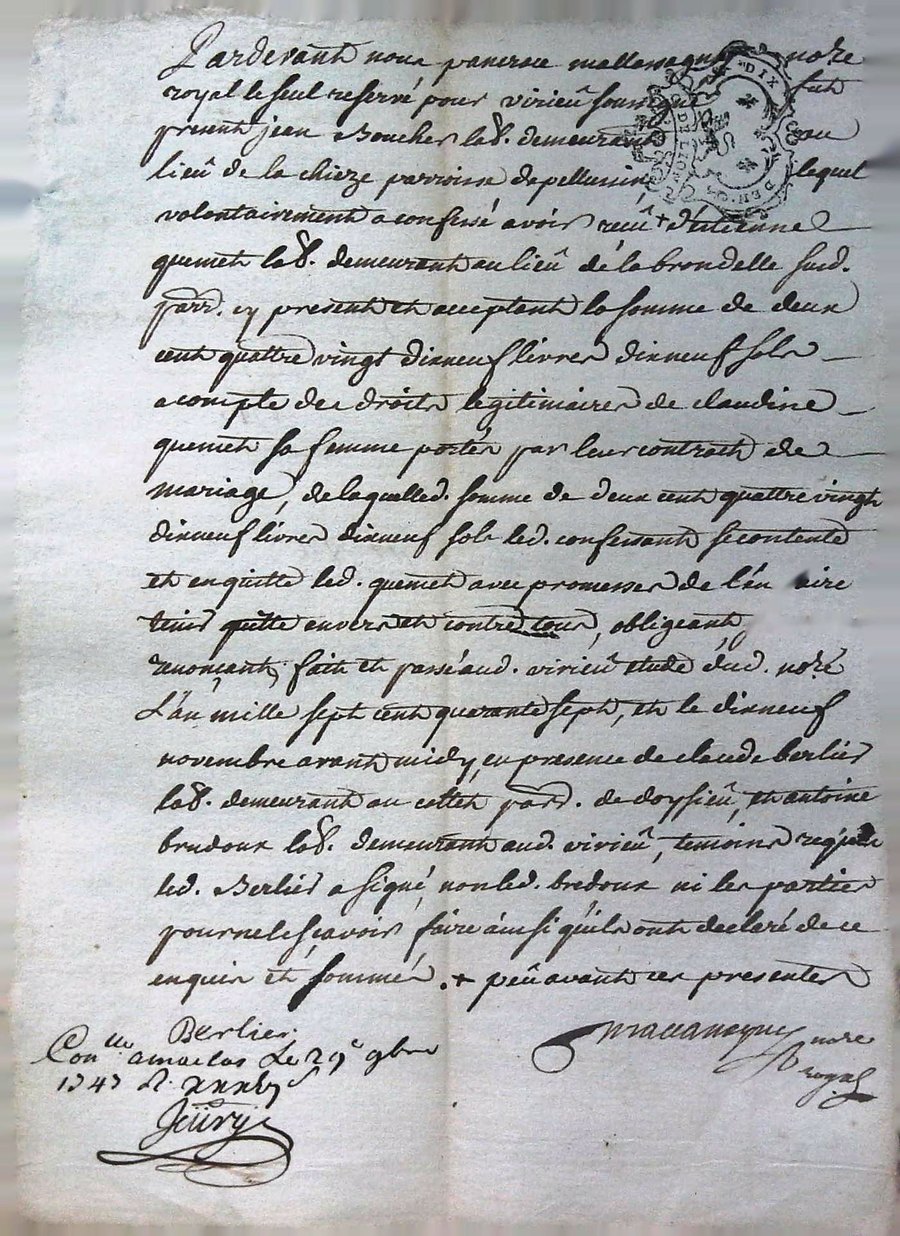 Pardevant nous pancrace mallemagne notre
royal le seul reservé pour virieû soussigné fut
present jean Boucher lab.r demeurant au
lieû de la chieze parroisse de pellussin, lequel
volontairement a confessé avoir receû + d'etienne
quemet lab.r demeurant au lieû de la brondelle susd.
parr. icy present et acceptant la somme de deux
cent quattre vingt dixneuf livres dixneuf sols
a compte des droits legitimaires de claudine
quemet sa femme portés par leur contrat de
mariage, de laquelle d. somme de deux cent quattre vingt
dixneuf livres dixneuf sols led. confessant se contente
et en quitte led. quemet avec promesses de l'en aire
tenir quitte envers et contre tous, obligeant,
renonçant, fait et passé aud. virieû etude dud. notre
L'an mille sept cent quarante sept, et le dixneuf
novembre avant midy, en presence de claude berlier
lab.r demeurant au collet parr. de doysieû, et antoine
brudoux lab.r demeurant aud. virieû, temoins requis
led. Berlier a signé, non led. brudoux ni les parties
pour ne le sçavoir faire ainsi qu'ils ont declaré de ce
enquis et sommés. + peû avant ces presentes
Berlier
notre
royal
Con.lle a maclas Le 29e 9bre
1747 R.
DIX
DEN.
DE LION